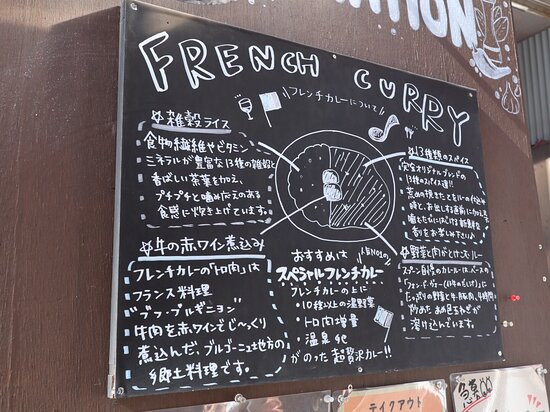 FRENCH CURRY
フレンチカレーについて
☆雑穀ライス
食物繊維やビタミン
ミネラルが豊富な13種の雑穀と
香ばしい茶葉を加え、
プチプチと噛みごたえのある
食感に炊き上げています。
☆牛の赤ワイン煮込み
フレンチカレーの「トロ肉」は
フランス料理
"ブフ・ブルギニョン"
牛肉を赤ワインでじ〜っくり
煮込んだ、ブルゴーニュ地方の
郷土料理です。
おすすめは
人気NO1の
スペシャルフレンチカレー
フレンチカレーの上に
・10種以上の温野菜
・トロ肉増量
・温泉卵
がのった超贅沢カレー!!
☆13種類のスパイス
完全オリジナルブレンドの
13種のスパイス達!!
香りをお楽しみ下さい
☆野菜と肉がとけこむルー
たっぷりの野菜と牛、豚肉、
炒めた あめ色玉ねぎが
溶け込んでいます。
テイクアウト
急募